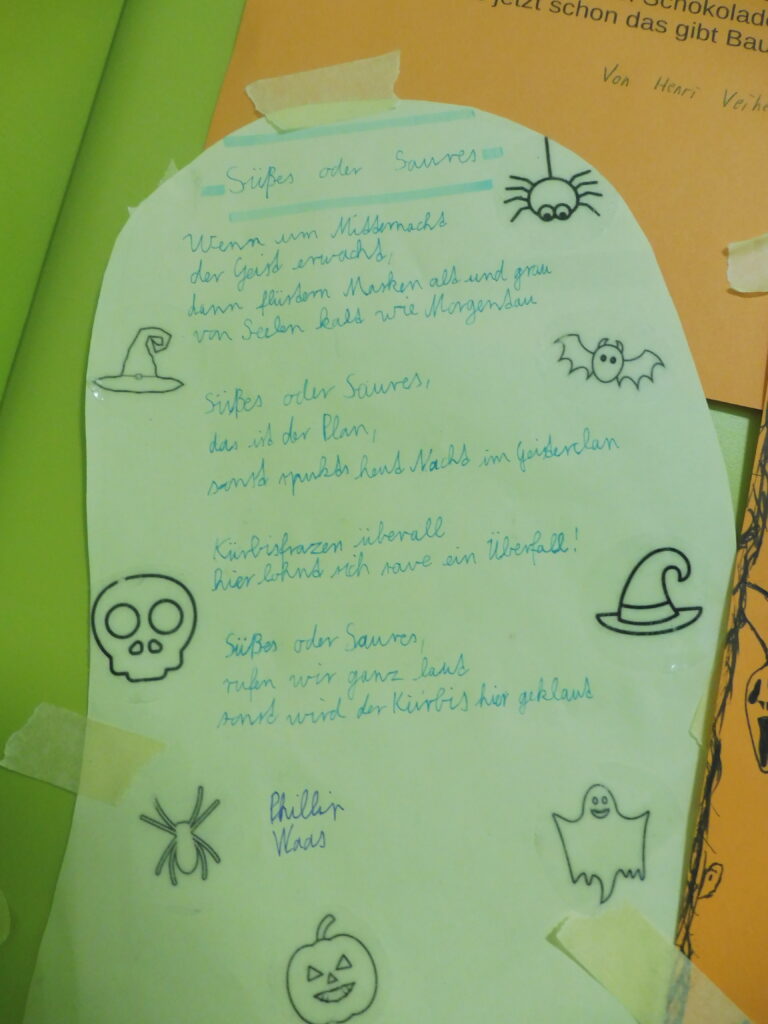 Schokolade
jetzt schon das gibt Bau
Von Henri
Süßes oder Saures
Wenn um Mitternacht
der Geist erwacht,
dann flüstern Masken alt und grau
von Seelen kalt wie Morgentau
Süßes oder Saures,
das ist der Plan,
sonst spukts heut Nacht im Geisterclan
Kürbisfrazen überall
hier lohnt sich save ein Überfall!
Süßes oder Saures,
rufen wir ganz laut
sonst wird der Kürbis hier geklaut
Phillip
Waas